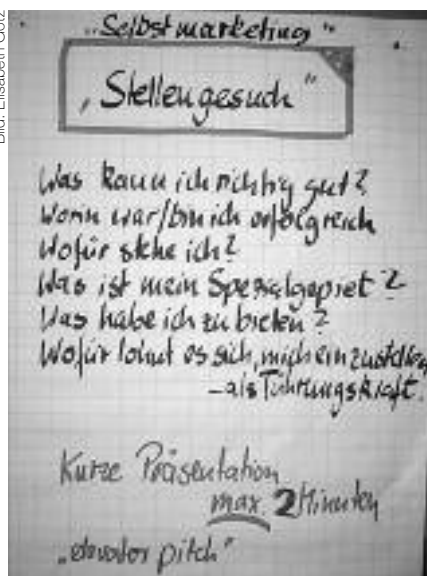 Bild: Elisabeth Götz
„Selbstmarketing“
„Stellengesuch“
Was kann ich richtig gut?
Worin war/bin ich erfolgreich
Wofür stehe ich?
Was ist mein Spezialgebiet?
Was habe ich zu bieten?
Wofür lohnt es sich, mich einzustellen
– als Führungskraft.
Kurze Präsentation
max. 2 Minuten
„elevator pitch“